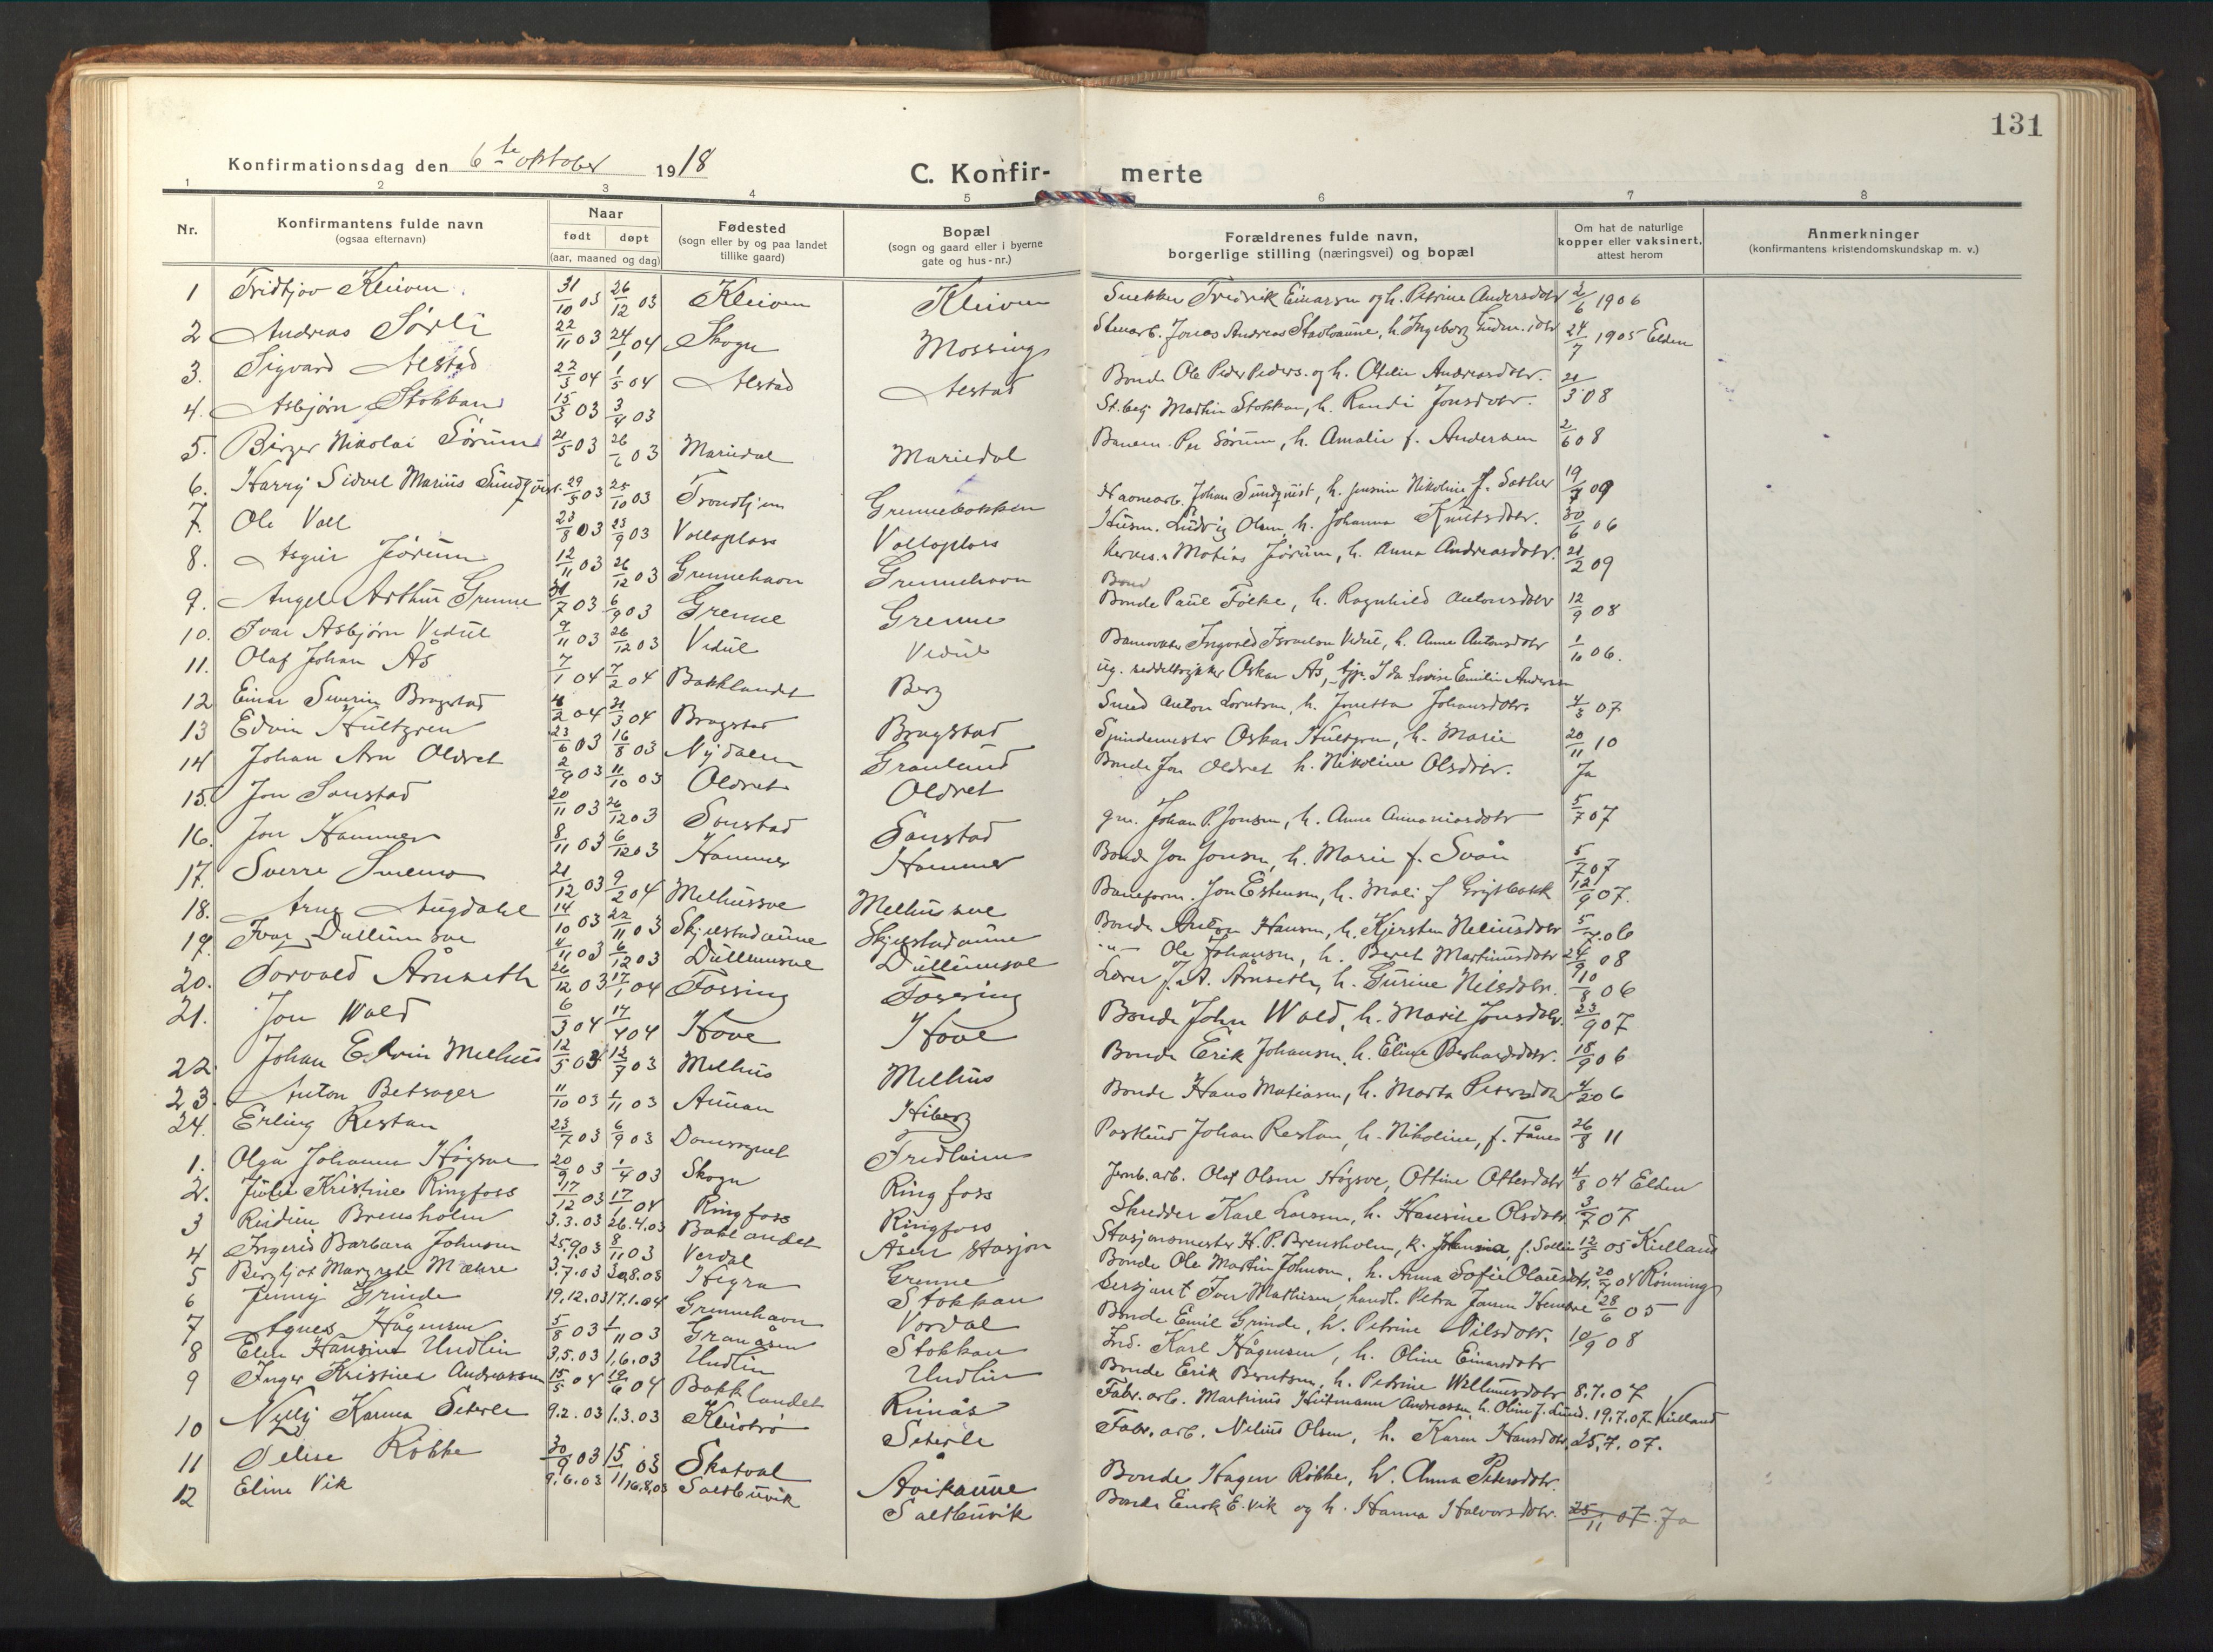 131
Konfirmationsdag den 6te oktober 1918
C. Konfir- merte
1 2 3 4 5 6 7 8
Nr. | Konfirmantens fulde navn (ogsaa efternavn) | Naar født døpt (aar, maaned og dag) | Fødested (sogn eller by og paa landet tillike gaard) | Bopæl (sogn og gaard eller i byerne gate og hus-nr.) | Forældrenes fulde navn, borgerlige stilling (næringsvei) og bopæl | Om hat de naturlige kopper eller vaksinert, attest herom | Anmerkninger (konfirmantens kristendomskundskap m. v.)
1 Fridtjov Kleiven 31/10 03 26/12 03 Kleiven Kleiven Snekker Fredrik Einarsen og h. Petrine Andersdotr 2/6 1906
2 Andreas Sørli 22/11 03 24/1 04 Skogn Mossing Stenarb. Jonas Andreas Stavlaune, h. Ingeborg 24/7 1905 Elden
3. Sigvard Alstad 22/3 04 1/5 04 Alstad Alstad Bonde Ole Peder Peders. og h. Otelie Andreasdotr. 21/3 08
4. Asbjørn Stokkan 15/3 03 3/4 03 St.betj Martin Stokkan, h. Randi Jonsdotr.
5. Birger Nikolai Sørum 21/5 03 26/6 03 Mariedal Mariedal Banem. Per Sørum, h. Amalie f. Andersen 2/6 08
6. Harry Sidvel Marius Sundqvist 29/5 03 25/10 03 Trondhjem Grennebakken Havnearb. Johan Sundqvist, h. Jensine Nikoline f. Sather 19/7 09
7. Ole Vall 23/8 03 23/9 03 Vollaplass Vollaplass Husm. Ludvig Olsen, h. Johanna Knutsdotr. 30/6 06
8. Asgeir Jørum 12/11 03 26/12 03 Grennehavn Grennehavn Matias Jørum, h. Anna Andreasdotr. 21/2 09
9. Angel Arthur Grenne 31/7 03 6/9 03 Grenne Grenne Bonde Paul Folke, h. Ragnhild Antonsdotr 12/9 08
10. Ivar Asbjørn Vedul 9/11 03 26/12 03 Vedul Vedul Banevokter Ingvald Israelsen Vedul, h. Anne Antonsdotr 1/10 06.
11. Olaf Johan Ås 7/1 04 7/2 04 Bakklandet Berg ug. Oskar Ås, tjp. Ida Lovise Emilie Andersen
12 Einar Severin Bragstad 4/2 04 21/3 04 Bragstad Bragstad Smed Anton Lorntsen, h. Jonetta Johansdotr. 4/3 07
13 Edvin Hultgren 23/6 03 16/8 03 Nydalen Granlund Spindemester Oskar Hultgren, h. Marie 20/11 10
14 Johan Arn Oldret 2/9 03 11/10 03 Oldret Oldret Bonde Jon Oldret h. Nikoline Olsdotr. Ja
15. Jon Sonstad 20/11 03 26/12 03 Sonstad Sonstad gm. Johan P. Jonsen, h. Anna Annaniasdotr 5/7 07
16. Jon Hammer 8/11 03 6/12 03 Hammer Hammer Bonde Jon Jonsen, h. Marie f. Svån 5/7 07
17. Sverre Smemo 21/12 03 9/2 04 Melhussve Melhussve Baneform. Jon Estensen, h. Mali f 12/9 07.
18. Arne Augdahl 14/10 03 22/11 03 Skjelstadaune Skjelstadaune Bonde Anton Hansen, h. Kjersten Neliusdotr 5/7 06
19. Ivar Dullumsve 4/11 03 6/12 03 Dullumsve Dullumsve -"- Ole Johansen, h. Beret Martinusdotr 24/9 08
20. Torvald Årnseth 26/12 03 17/1 04 Fossing Fossing Lærer J. A. Årnseth, h. Gusine Nilsdotr. 10/8 06
21. Jon Wold 6/3 04 17/4 04 Hove Hove Bonde John Wold, h. Marit Jonsdotr. 23/9 07
22. Johan Edvin Melhus 12/5 03 12/7 03 Melhus Melhus Bonde Erik Johansen h. Eline Berhardsdotr. 18/9 06
23. Anton Betsager 11/10 03 1/11 03 Aunan Hiberg Bonde Hans Matiasen, h. Marta Petersdotr 4/2 06
24. Erling Restan 23/7 03 6/9 03 Fredheim Postbud Johan Restan, h. Nikoline, f. Fånes 26/8 11
1. Olga Johanna Høgsve 20/9 03 1/4 03 Skogn Jernb.arb. Olaf Olsen Høgsve, Ottine Ottesdotr 4/8 04 Elden
2. Julie Kristine Ringfoss 17/12 03 17/1 04 Ringfoss Ringfoss Skredder Karl Larsen, h. Hansine Olsdotr 3/7 07
3 Reidun Brensholm 3.3.03 26.4.03 Baklandet Ringfoss Stasjonsmester H. P. Brensholm, h. Johanna, f. Sollie 12/5 05 Kielland
4 Ingerid Barbara Johnsen 25.9.03 8/11 03 Verdal Åsen stasjon Bonde Ole Martin Johnsen, h. Anna Sofie Olausdotr. 20/7 04 Rønning
5 Bergljot Margrete Mæhre 3.7.03 30.8.03 Hegra Grenne Sersjant Iver Mathisen, handl. Petra Jonsen 28/6 05
6 Jenny Grinde 19.12.03 17.1.04 Grennehavn Stokkan Bonde Emil Grinde, h. Petrine Nilsdotr. 10/9 08
7 Agnes Hågensen 5/8 03 1/11 03 Granåsen Vordal Ind. Karl Hågensen, h. Oline Einarsdotr
8 Elen Hansine Undlin 3.5.03 1.6.03 Undlin Stokkan Bonde Erik Berntsen, h. Petrine Willumsdotr 8.7.07
9 Inger Kristine Andreassen 15/5 04 19/6 04 Bakklandet Undlin Fabr. arb. Martinus Heitmann Andreassen, h. Oline f. Lund. 19.7.07 Kielland
10 Nelly Karma Seterli 9.2.03 1.3.03 Rinås Fabr. arb. Nelius Olsen, h. Karen Hansdotr. 25.7.07.
11 Røkke 30/9 03 15/11 03 Skatval Seterli Bonde Hagen Røkke, h. Anna Petersdotr.
12 Eline Vik 9.6.03 16.8.03 Saltbuvik Avikaune Bonde Enok E. Vik og h. Hanna Halvorsdotr. 25/11 07. Ja
Saltbuvik